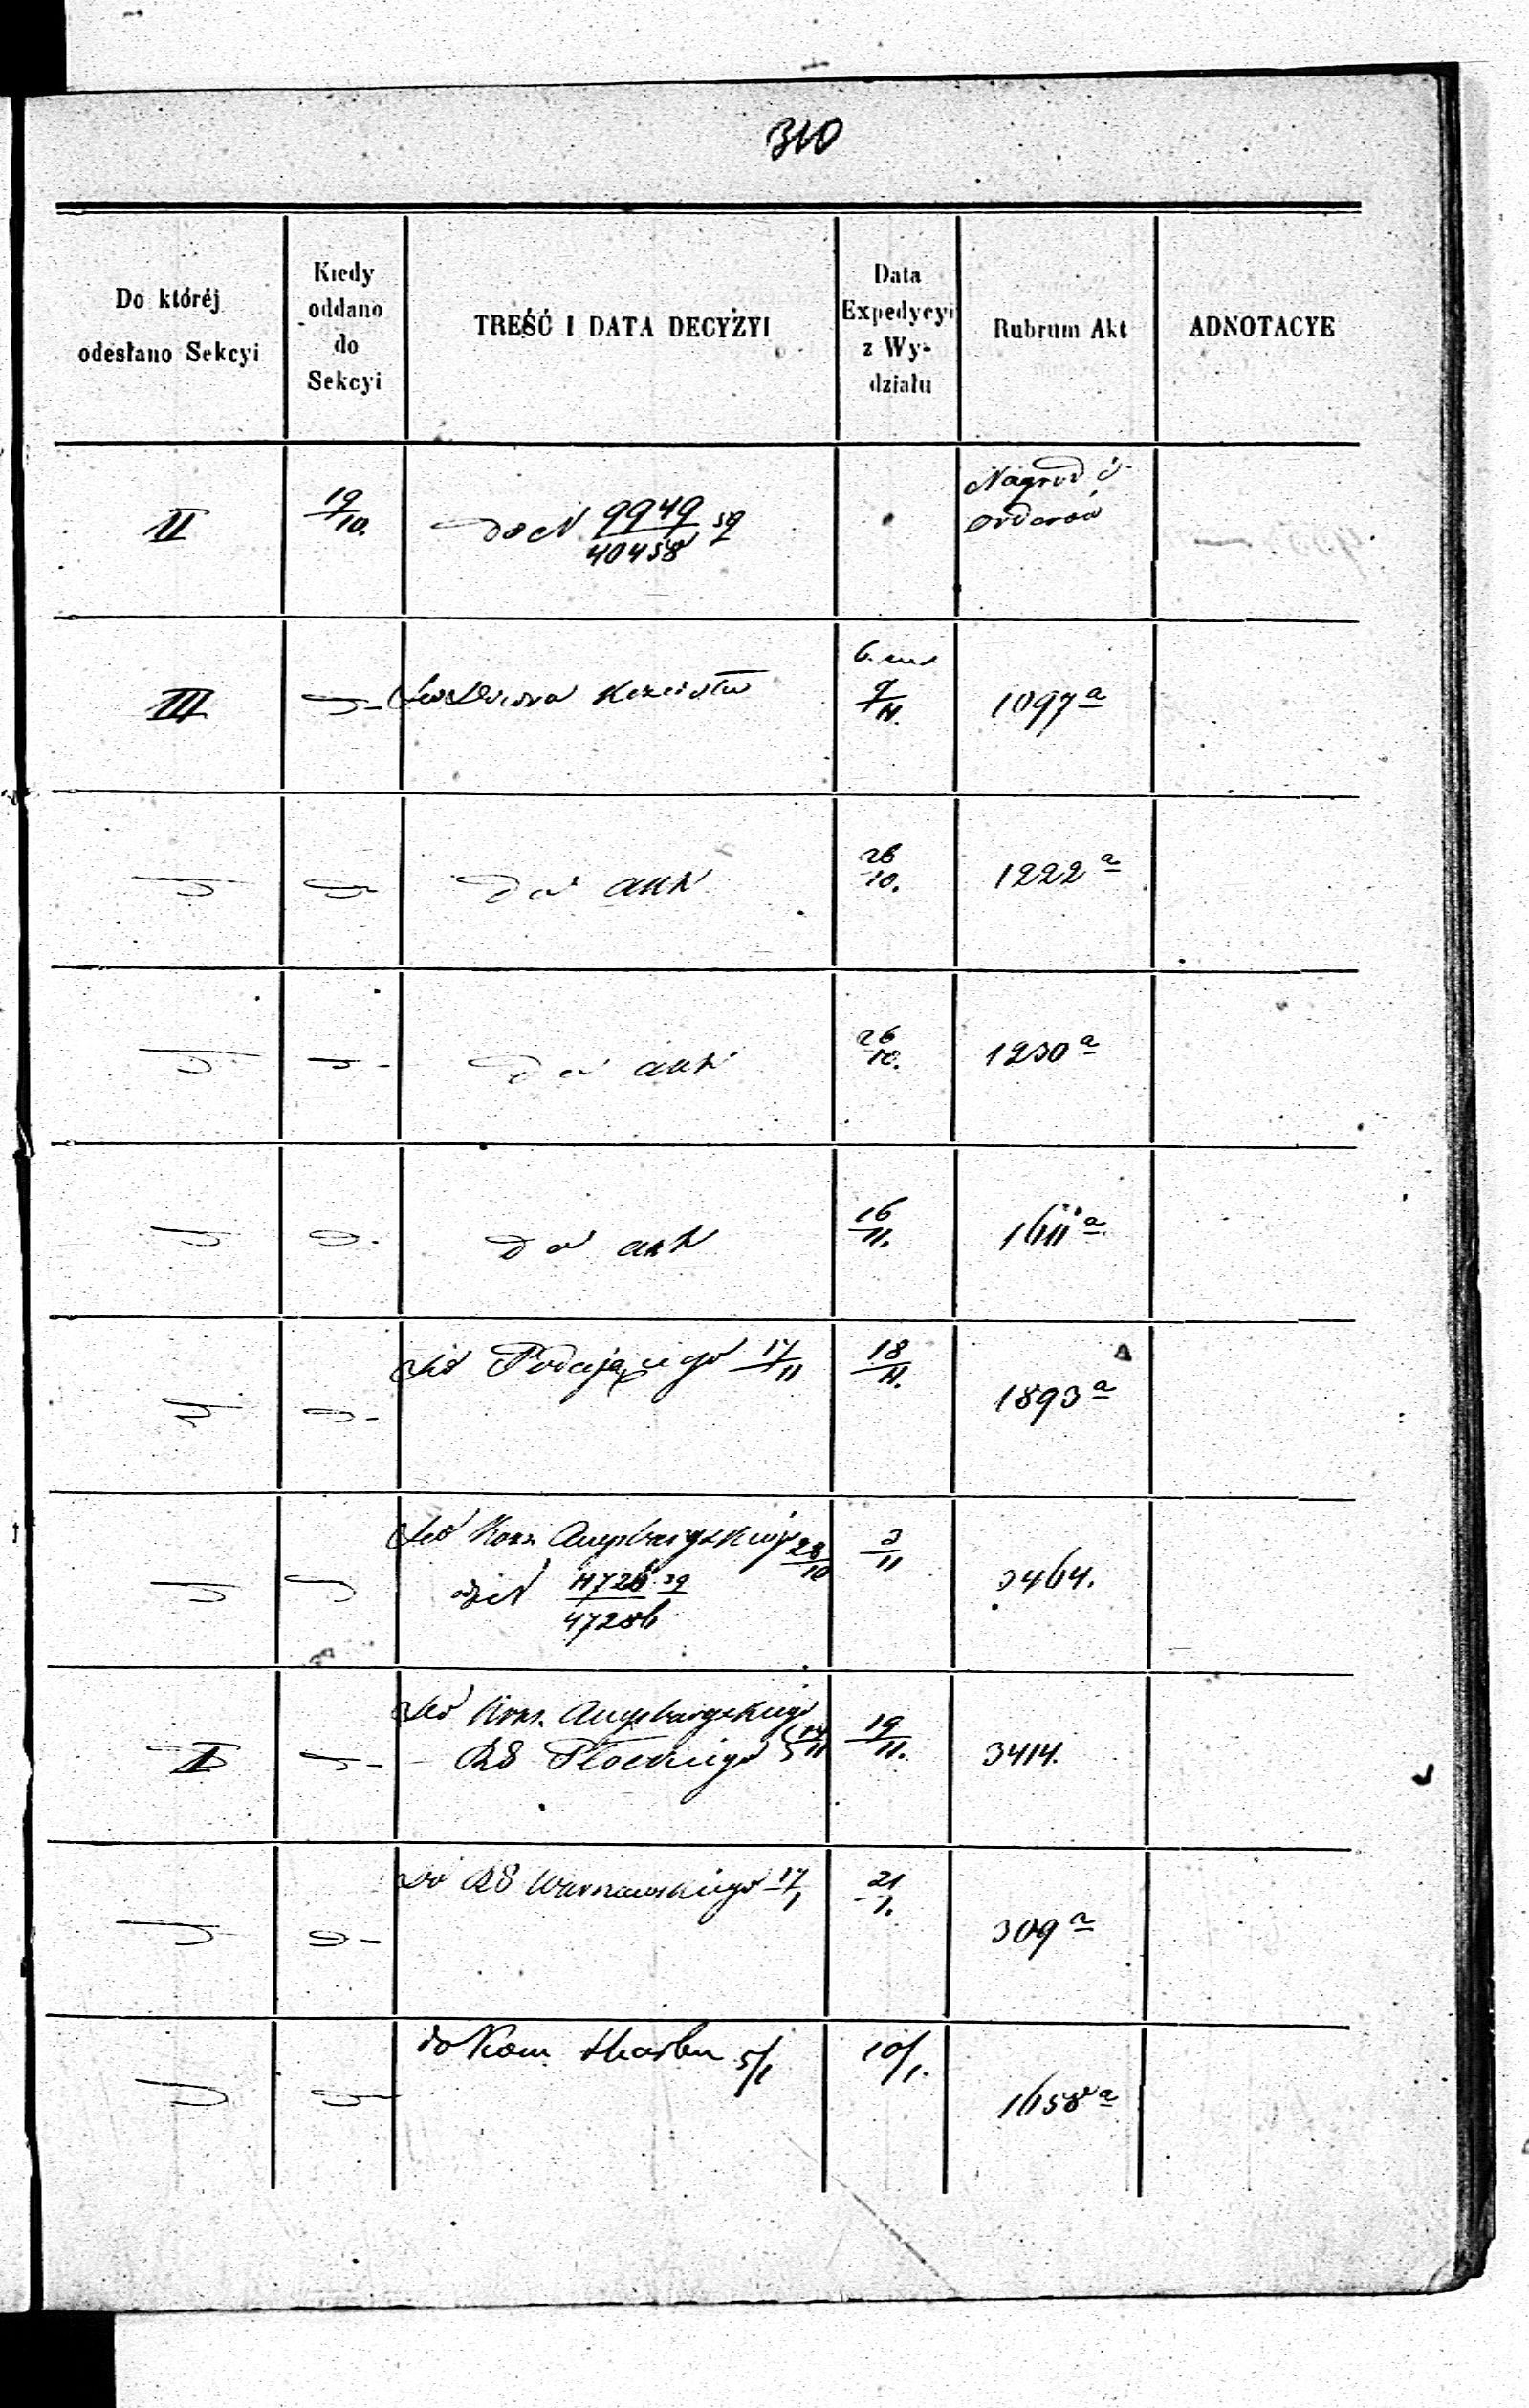 310
Do któréj
odesłano Sekcyi
Kiedy
oddano
do
Sekcyi
TREŚĆ I DATA DECYZYI
Data
Expedycyi
z Wy-
działu
Rubrum Akt
ADNOTACYE
II
19/10.
do N 9949/40458 59
Nagrod i
orderów
III
9/11.
1097 a
do akt
26/10.
1222 a
do akt
26/10.
1230 a
do akt
16/11.
1611 a
Do Podającego 17/11
18/11.
1893 a
Do Kons. Augsburgskiego 28/10
11726/47286 59
3/11
3464.
Do Kons. Augsburgskiego
RG Płockiego 14/11
19/11.
3414.
Do RG Warszawskiego 17/1
21/1.
309 a
do Kom Skarbu 5/1
10/1.
1658 a